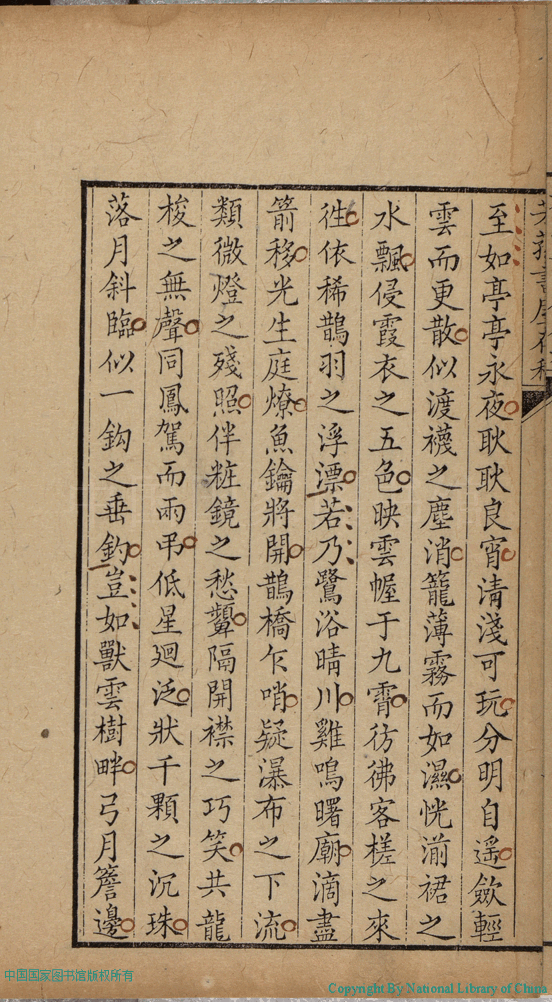 至如亭亭永夜耿耿良宵清淺可玩分明自遙斂輕
雲而更散似渡襪之塵消籠薄霧而如濕恍湔裙之
水飄侵霞衣之五色映雲幄于九霄彷彿客槎之來
徃依稀鵲羽之浮漂若乃鷺浴晴川雞鳴曙廟滴盡
箭移光生庭燎魚鑰將開鵲橋乍哨疑瀑布之下流
類微燈之殘照伴粧鏡之愁顰隔開襟之巧笑共龍
梭之無聲同鳳駕而雨弔低星廻泛狀千顆之沉珠
落月斜臨似一鈎之垂釣豈如獸雲樹畔弓月簷邊
中国国家图书馆版权所有
Copyright By National Library of China